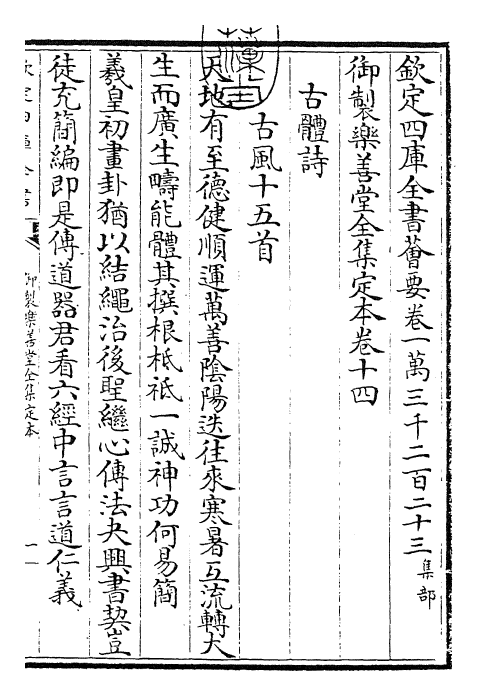 欽定四庫全書薈要卷一萬三千二百二十三集部
御製樂善堂全集定本卷十四
古體詩
古風十五首
天地有至德健順運萬善陰陽迭往來寒暑互流轉大
生而廣生疇能體其撰根柢祗一誠神功何易簡
羲皇初畫卦猶以結繩治後聖繼心傳法夬興書契豈
徒充簡編即是傳道器君看六經中言言道仁義
欽定四庫全書
御製樂善堂全集定本
一